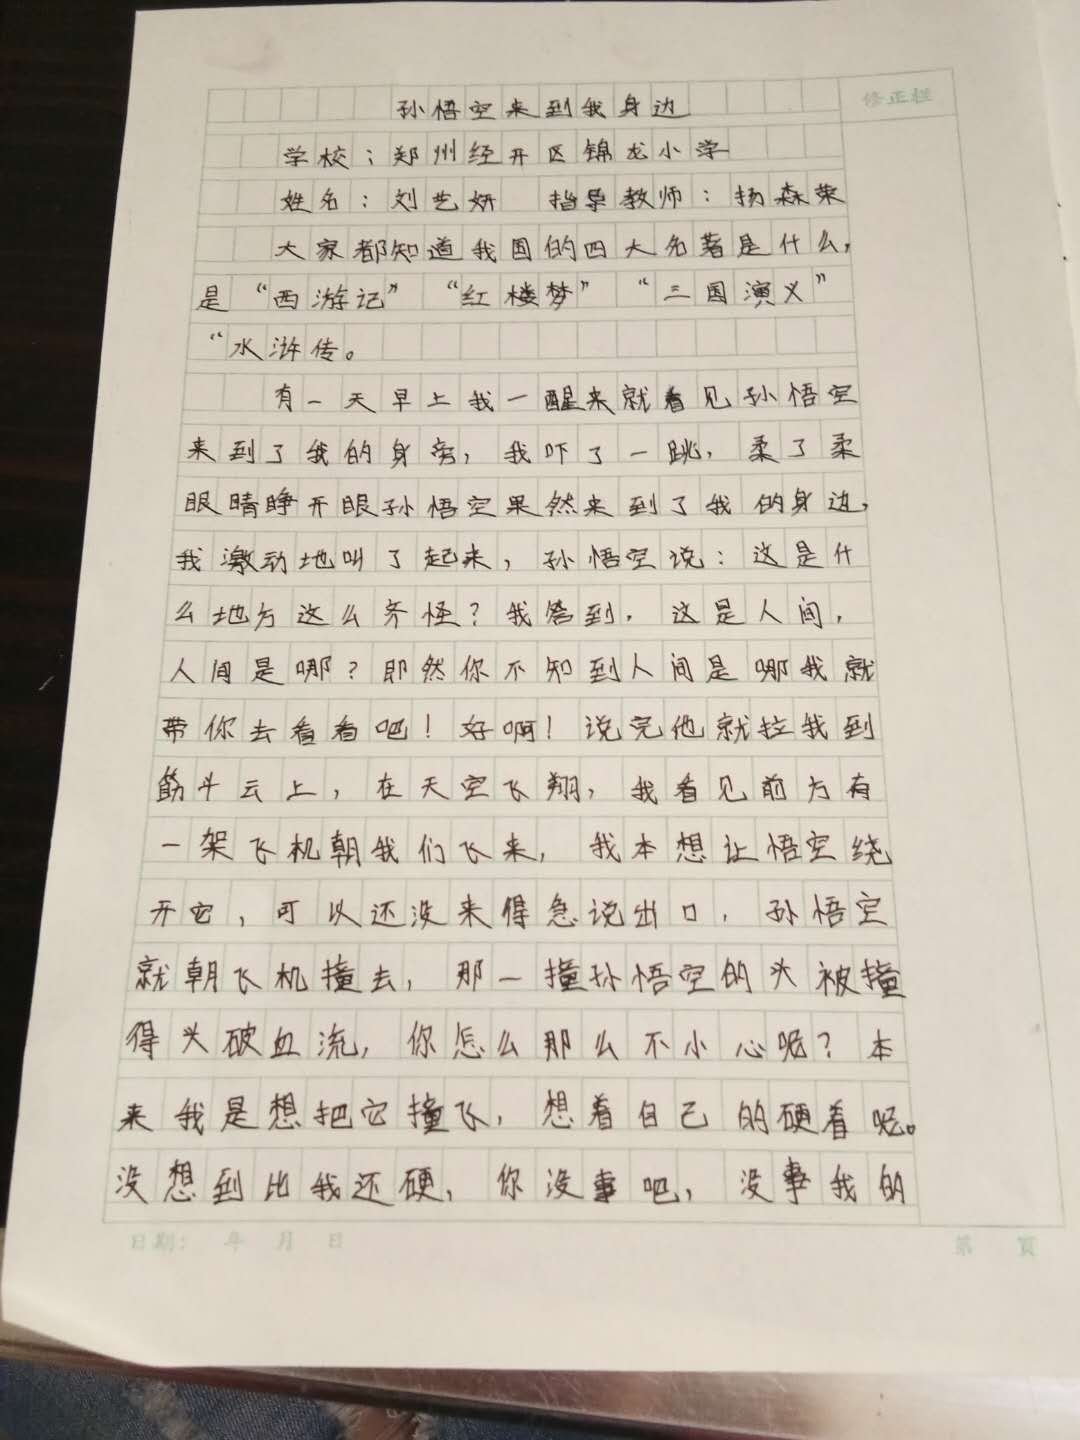 孙悟空来到我身边
修正栏
学校：郑州经开区锦龙小学
姓名：刘艺妍 指导教师：杨森荣
大家都知道我国的四大名著是什么，
是“西游记”“红楼梦”“三国演义”
“水浒传。
有一天早上我一醒来就看见孙悟空
来到了我的身旁，我吓了一跳，柔了柔
眼睛睁开眼孙悟空果然来到了我的身边，
我激动地叫了起来，孙悟空说：这是什
么地方这么奇怪？我答到，这是人间，
人间是哪？即然你不知到人间是哪我就
带你去看看吧！好啊！说完他就拉我到
筋斗云上，在天空飞翔，我看见前方有
一架飞机朝我们飞来，我本想让悟空绕
开它，可以还没来得急说出口，孙悟空
就朝飞机撞去，那一撞孙悟空的头被撞
得头破血流，你怎么那么不小心呢？本
来我是想把它撞飞，想着自己的硬着呢。
没想到比我还硬，你没事吧，没事我的
日期： 年 月 日
第 页